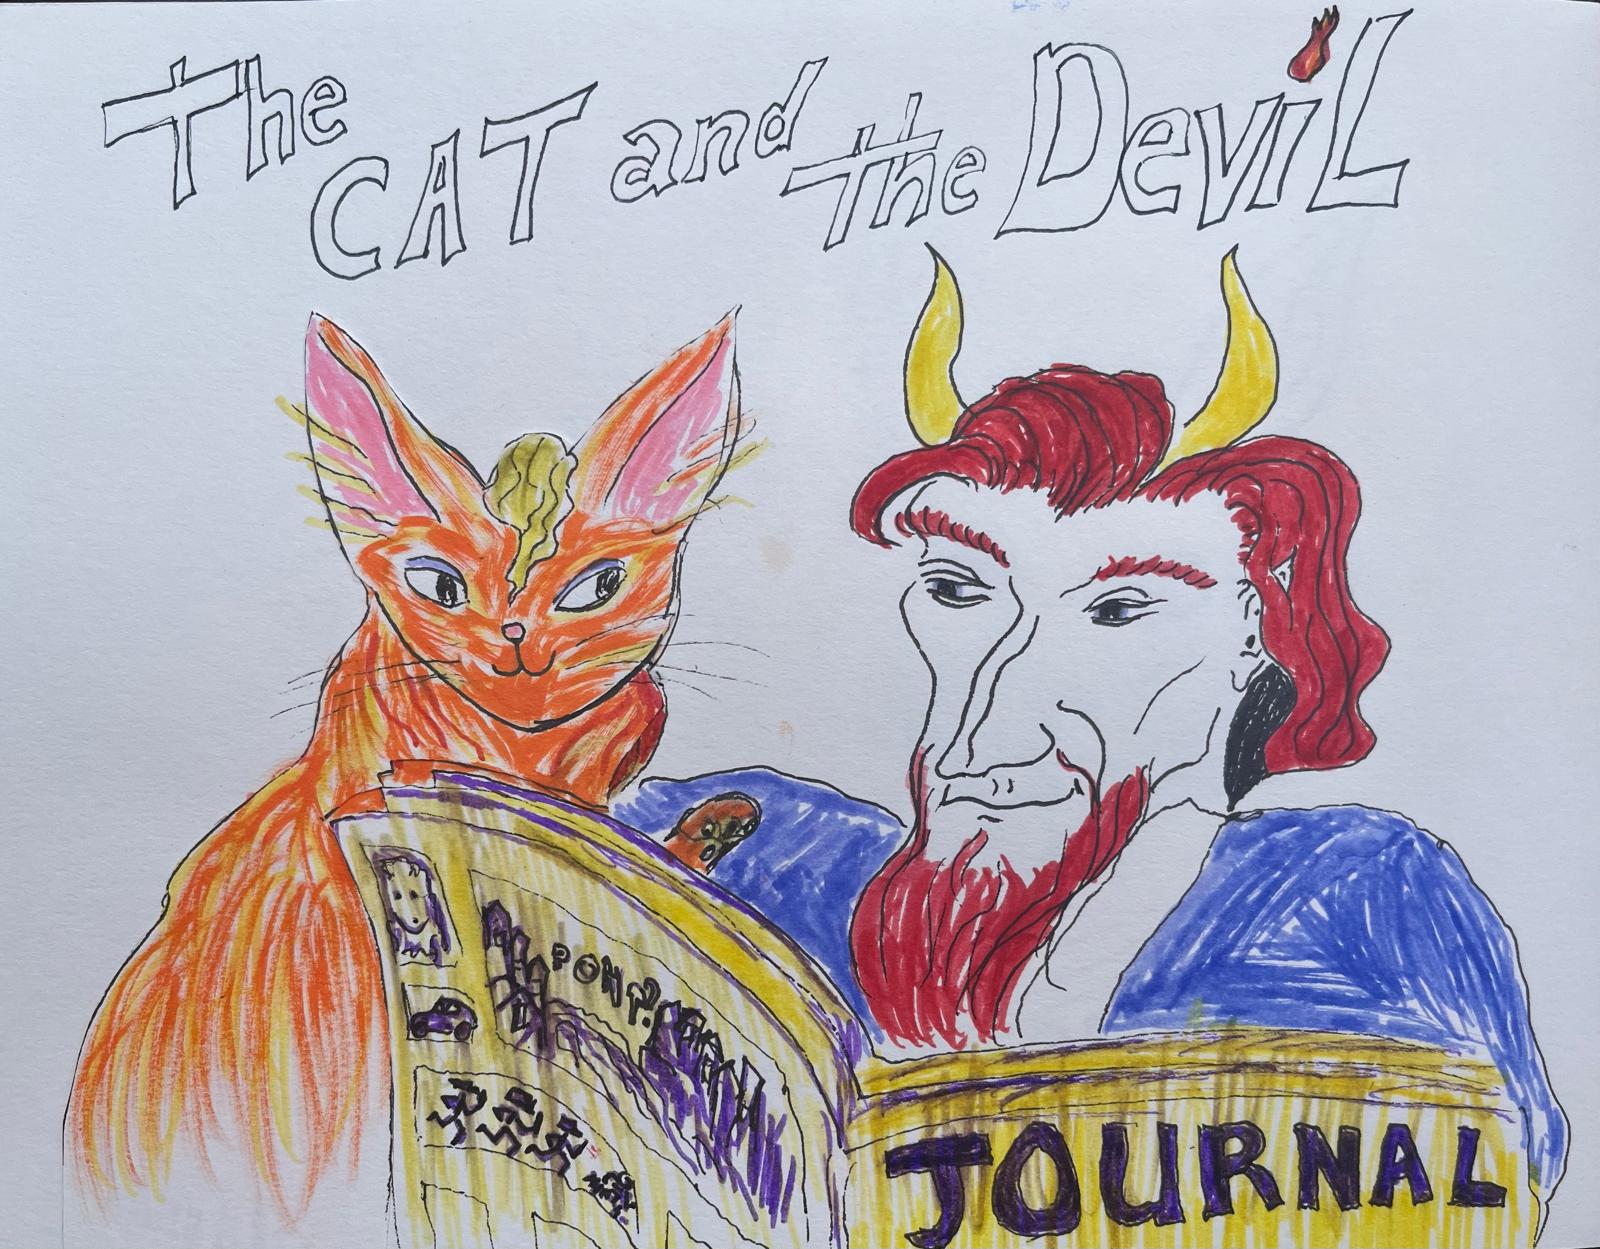 The CAT and the DeviL
JOURNAL